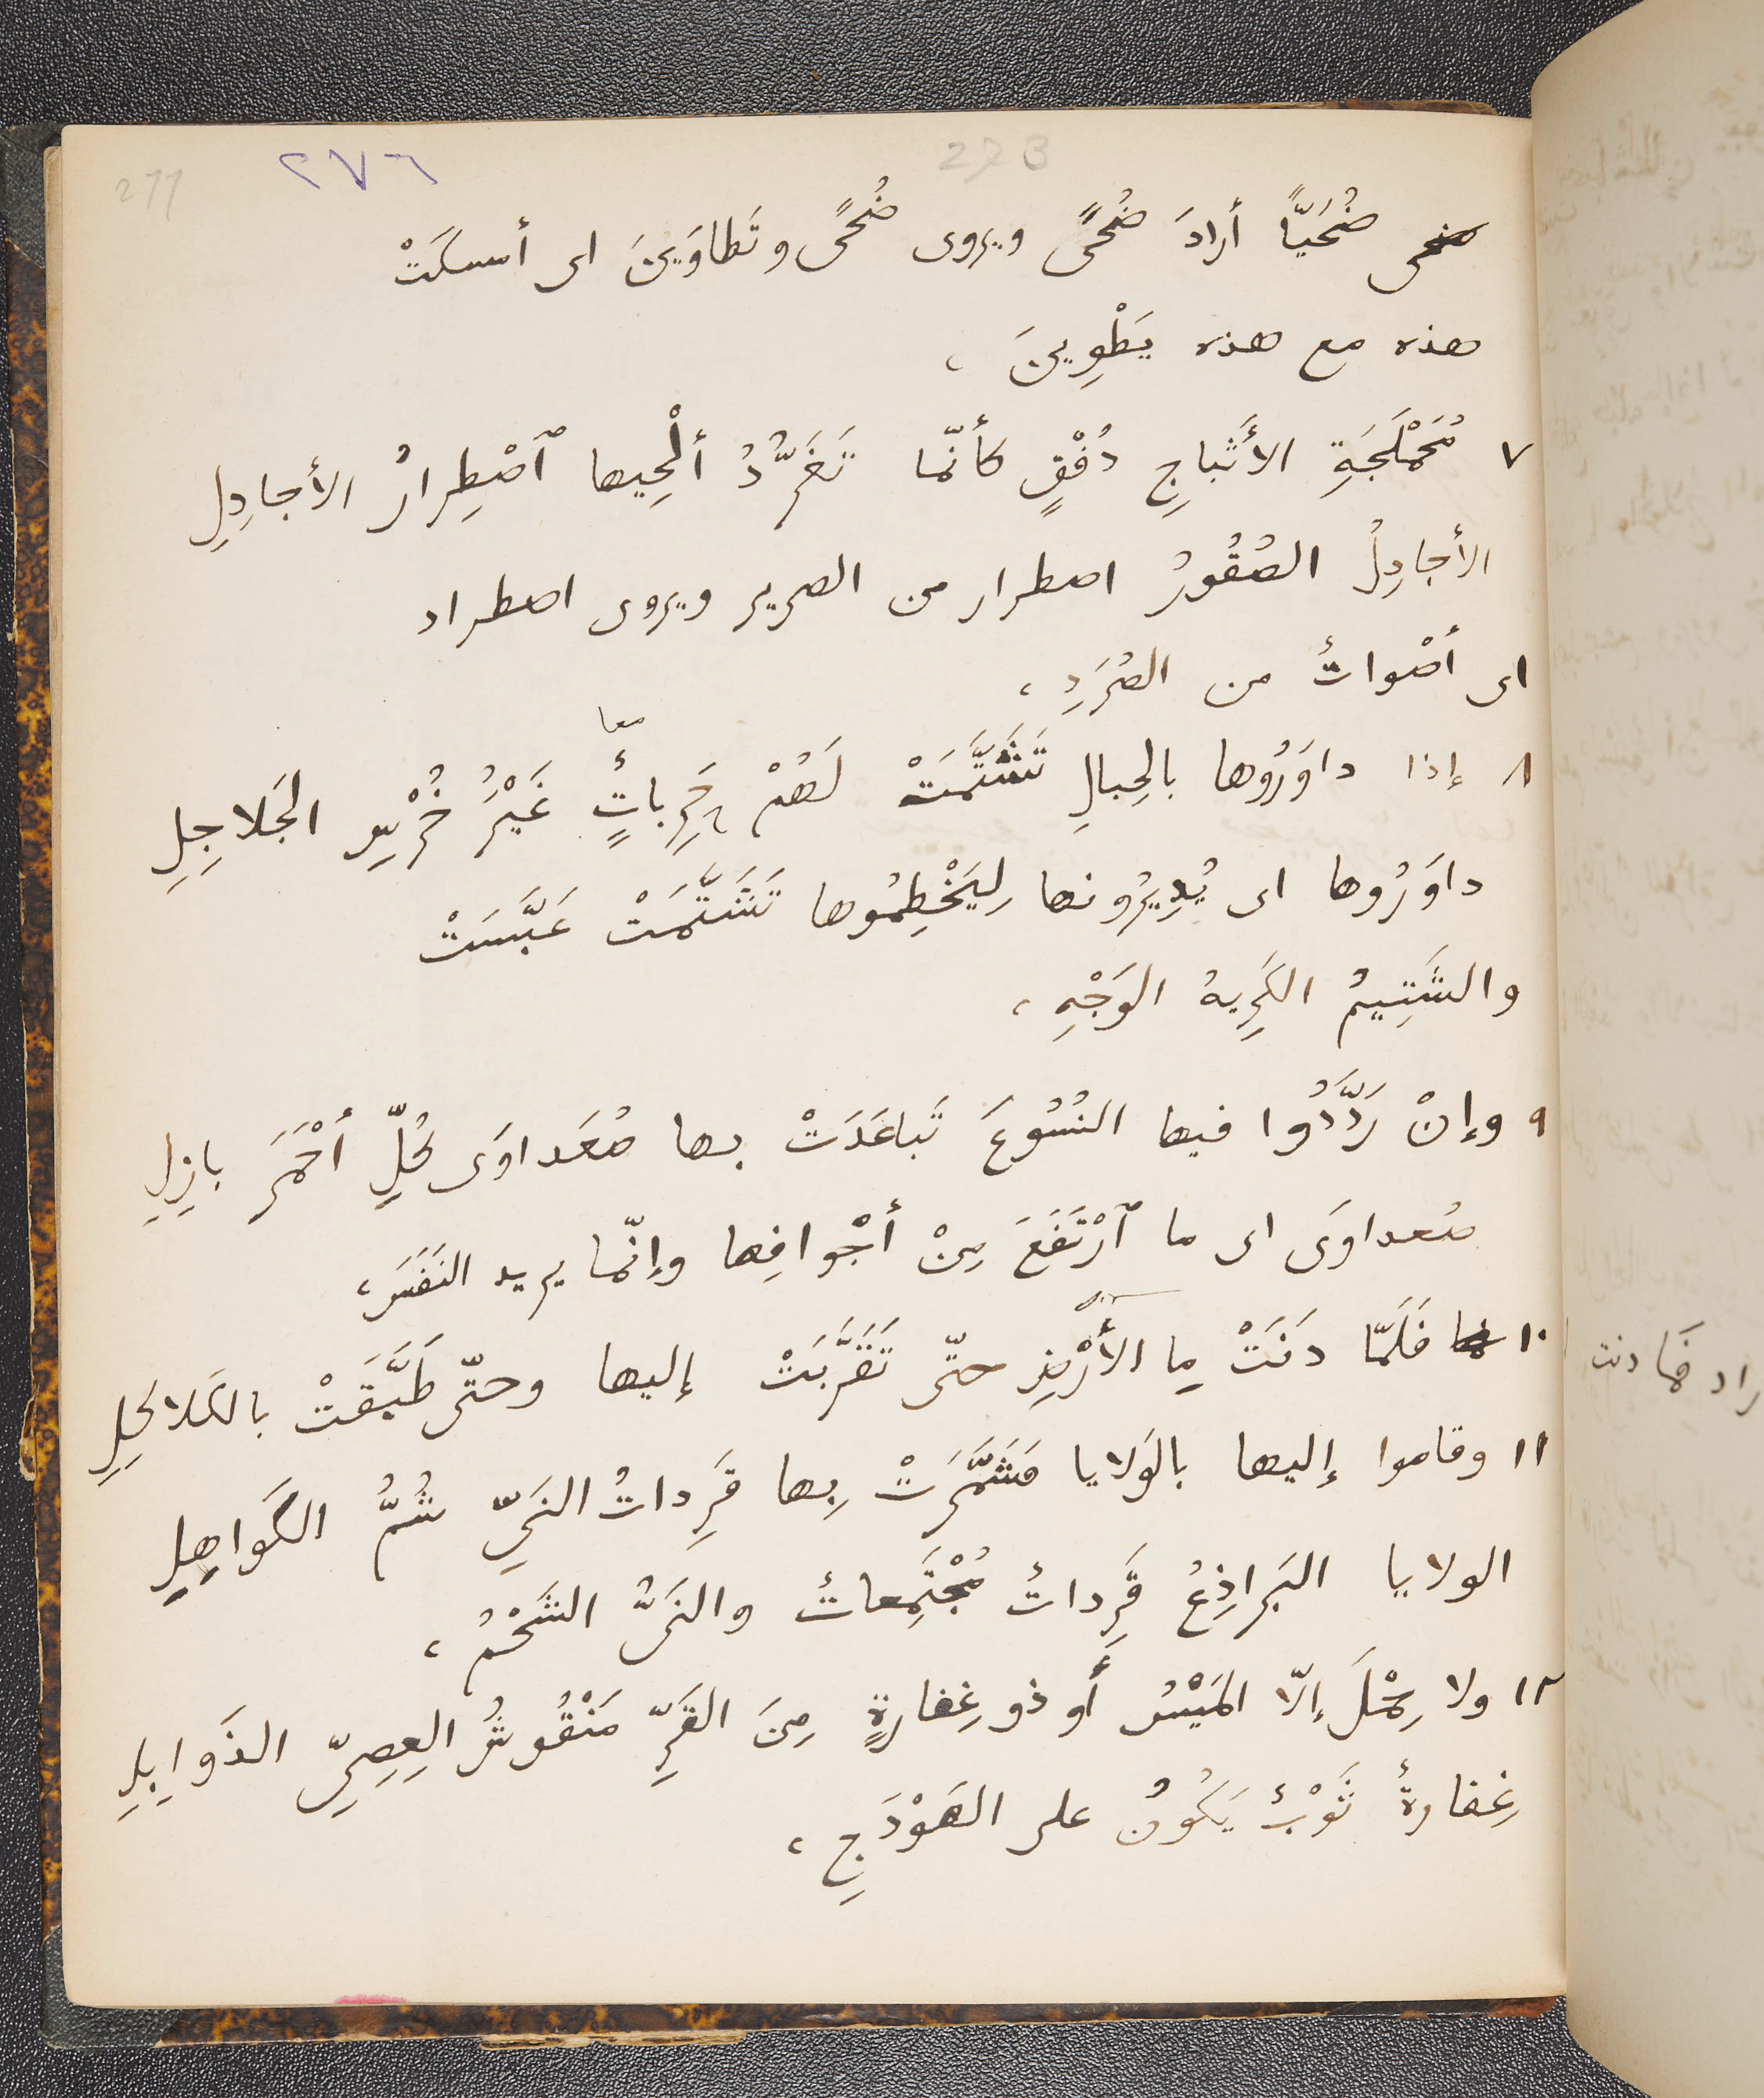 277
٢٧٦
ضُحَيًّا أرادَ ضُحًى ويروى ضُحًى وتَطاوَينَ اى أمسكَتْ
هذه مع هذه يَطْوِينَ ،
٧ مُحَمْلَجَةِ الأَثْباجِ دُفْقٍ كأنّما تَغَرُّدُ أَلْحِيها ٱصْطِرارُ الأجادِلِ
الأجادِلُ الصُقُورُ اصطرار من الصرير ويروى اصطراد
اى أصْواتُ من الصُرَدِ ،
معا
٨ إذا داوَرُوها بالحِبالِ تَشَتَّمَتْ لَهُمْ خَرِباتٌٍ غَيْرُ خُرْسِ الجَلاجِلِ
داوَرُوها اى يُدِيرُونها لِيَخْطِمُوها تَشَتَّمَتْ عَبَّسَتْ
والشَتِيمُ الكَرِيهُ الوَجْهِ ،
٩ وإنْ رَدَّدُوا فيها النُسُوعَ تَباعَدَتْ بها صُعَداوَى كُلِّ أَحْمَرَ بازِلِ
صُعداوَى اى ما ٱرْتَفَعَ مِنْ أجْوافِها وإنّما يريد النَفَسَ ،
١٠ فَلَمّا دَنَتْ مِا الأَرْضِ حتّى تَقَرَّبَتْ إليها وحتّى طَبَّقَتْ بالكَلاكِلِ
١١ وقاموا إليها بالوَلايا فشَمَّرَتْ بِها قَرِداتُ النَيِّ شُمُّ الكَواهِلِ
الولايا البَراذِعُ قَرِداتُ مُجْتَمِعاتُ والنَىُّ الشَحْمُ ،
١٢ ولا رِحْلَ إلّا المَيْسُ أو ذو غِفارةٍ مِنَ القَرِّ مَنْقُوشُ العِصِيِّ الذَوابِلِ
غِفارةُ ثَوْبُ يَكُونُ على الهَوْدَجِ ،